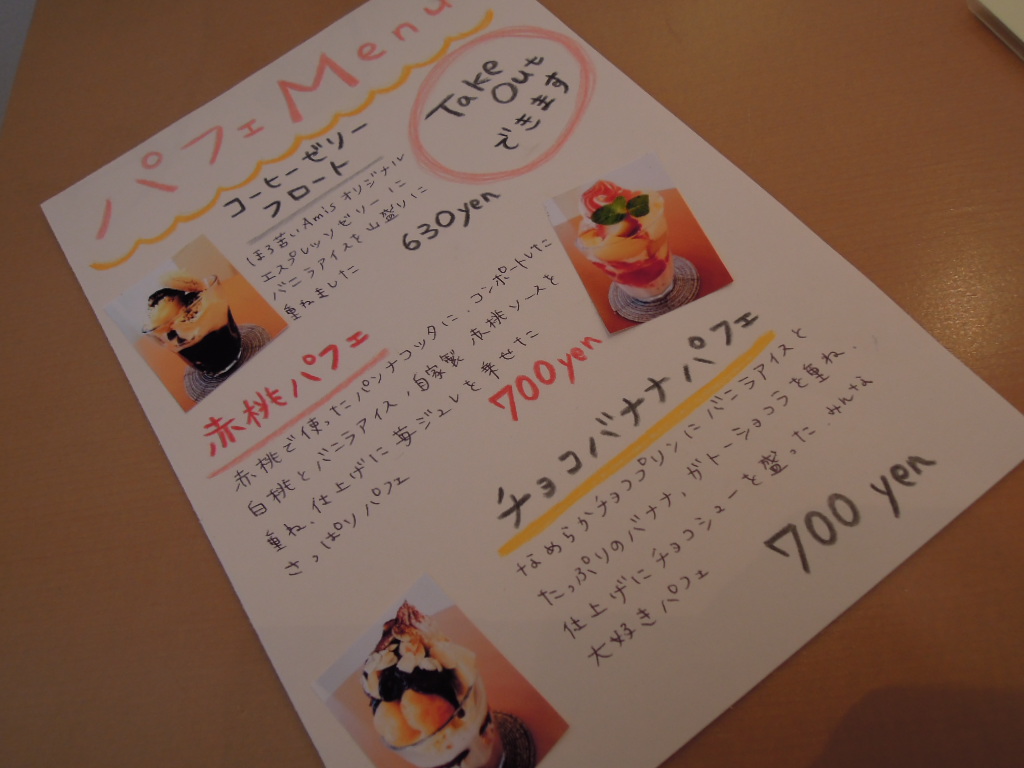 パフェ Menu
Take
Out
できます
コーヒーゼリー
フロート
ほろ苦いAmisオリジナル
エスプレッソゼリーに
バニラアイスを山盛りに
重ねました
630yen
赤桃パフェ
赤桃で使ったパンナコッタに、コンポートした
白桃とバニラアイス、自家製 赤桃ソースを
重ね、仕上げに苺ジュレを乗せた
さっぱりパフェ
700yen
チョコバナナパフェ
なめらかチョコプリンにバニラアイスと
たっぷりのバナナ、ガトーショコラを重ね、
仕上げにチョコシューを盛った、みんな
大好きパフェ
700 yen